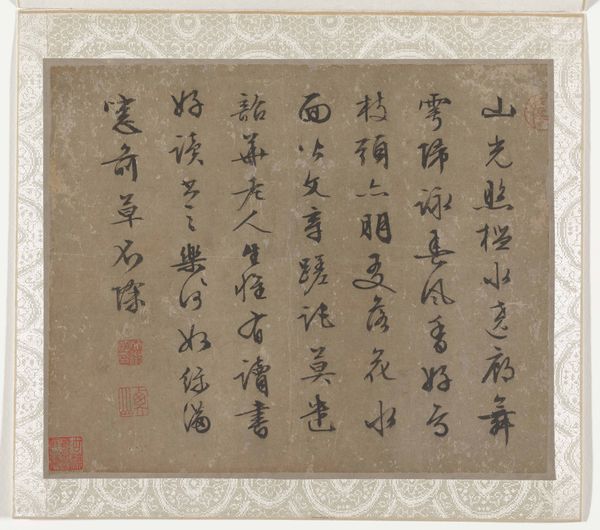 山光照檻水遶廊舞
雩歸詠春風香好鳥
枝頭亦朋友落花水
面皆文章蹉跎莫遣
韶華老人生惟有讀書
好讀書之樂何如綠滿
窗前草不除